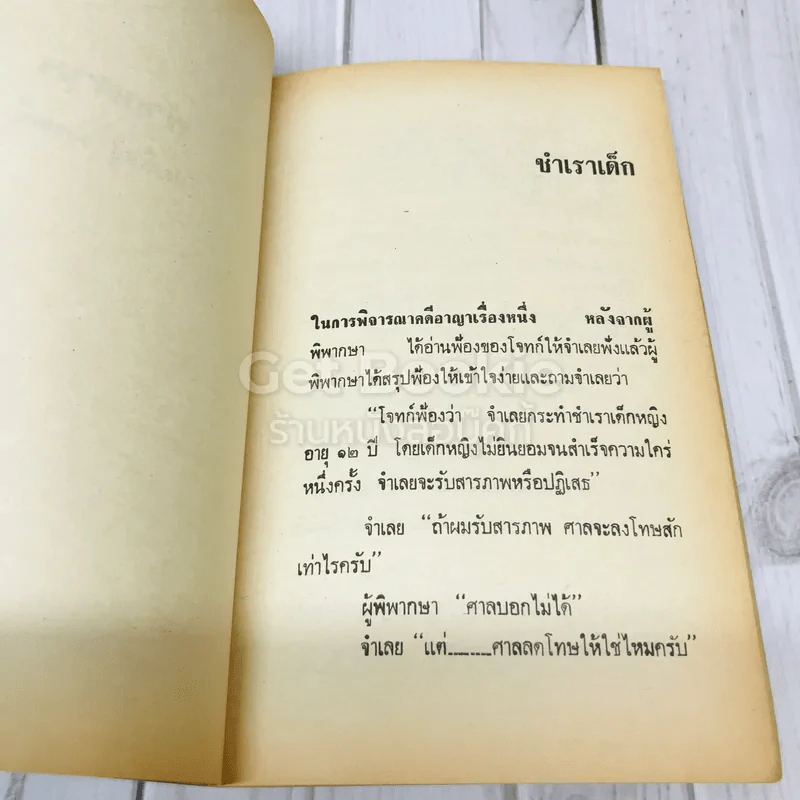 ชำเราเด็ก
ในการพิจารณาคดีอาญาเรื่องหนึ่ง หลังจากผู้
พิพากษา ได้อ่านฟ้องของโจทก์ให้จำเลยฟังแล้วผู้
พิพากษาได้สรุปฟ้องให้เข้าใจง่ายและถามจำเลยว่า
“โจทก์ฟ้องว่า จำเลยกระทำชำเราเด็กหญิง
อายุ ๑๒ ปี โดยเด็กหญิงไม่ยินยอมจนสำเร็จความใคร่
หนึ่งครั้ง จำเลยจะรับสารภาพหรือปฏิเสธ”
จำเลย “ถ้าผมรับสารภาพ ศาลจะลงโทษสัก
เท่าไรครับ”
ผู้พิพากษา “ศาลบอกไม่ได้”
จำเลย “แต่.........ศาลลดโทษให้ใช่ไหมครับ”
Get Bookie
ร้านหนังสือมือสอง